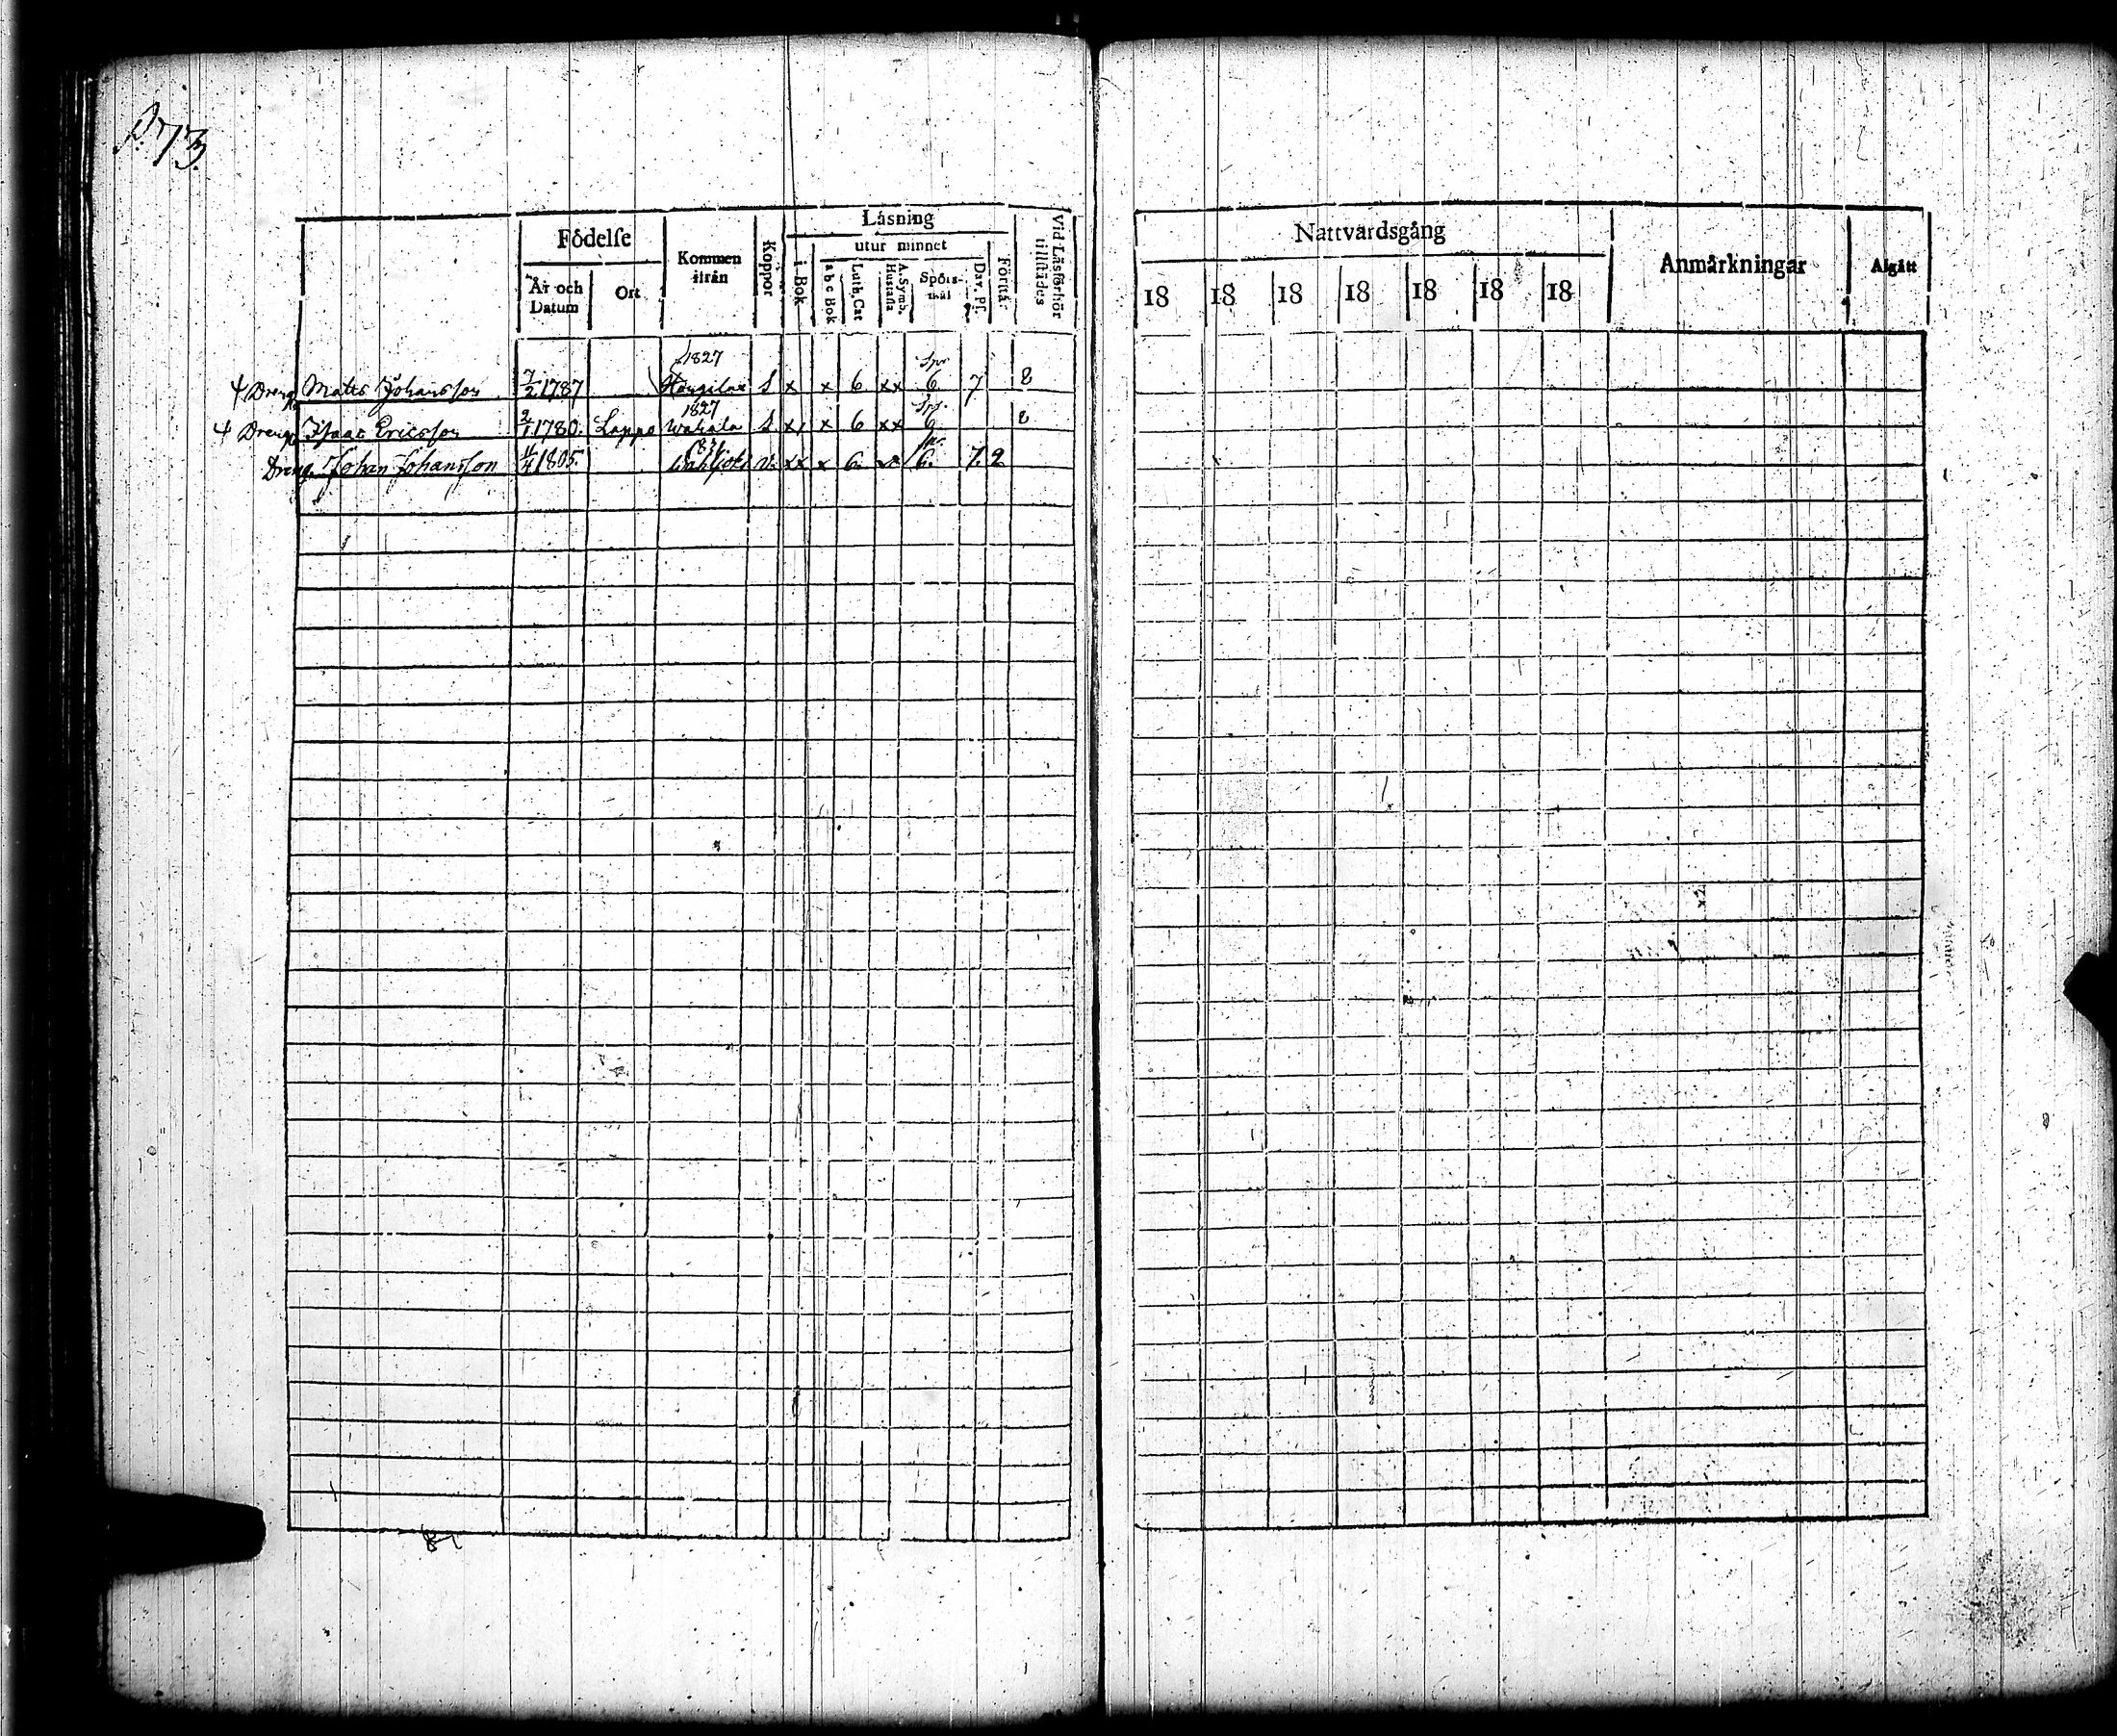 p. 73.
Födelse
Kommen ifrån
Koppor
Läsning
utur minnet
Vid Läsförhör tillstädes
År och Datum
Ort
i Bok
a b c Bok
Luth. Cat
A. Symb. Hustafla
Spörsmål
Dav. Ps.
Förstå.
Nattvardsgång
Anmärkningar
Afgått
18 18 18 18 18 18 18
1827 Spr
Dreng Matts Johansson 7/2 1787 S x x 6 xx 6 7 8
1827 Spr.
Dreng Isaac Ericsson 2/1 1780. Lappo S xx x 6 xx 6 8
Dreng Johan Johansson 11/4 1805. v. xx x 6. xx 6. 7. 2